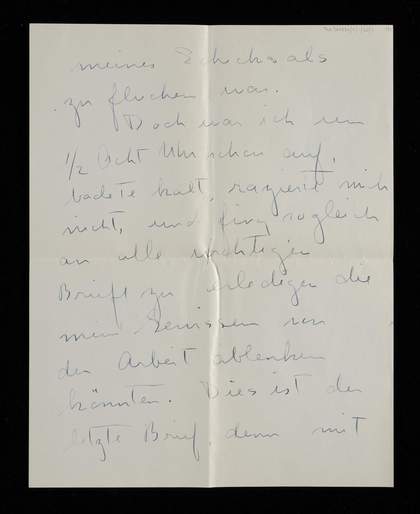 meines Schicksals
zu fluchen war.
Doch war ich um
1/2 Acht Uhr schon auf,
badete kalt, rasierte mich
nicht, und fing sogleich
an alle wichtigen
Briefe zu erledigen die
mein Gewissen von
der Arbeit ablenken
könnten. Dies ist der
letzte Brief, denn mit